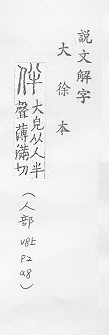 說文解字
大徐本
伴 大皃从人半
聲薄滿切
(人部
v8上
p2
a8)